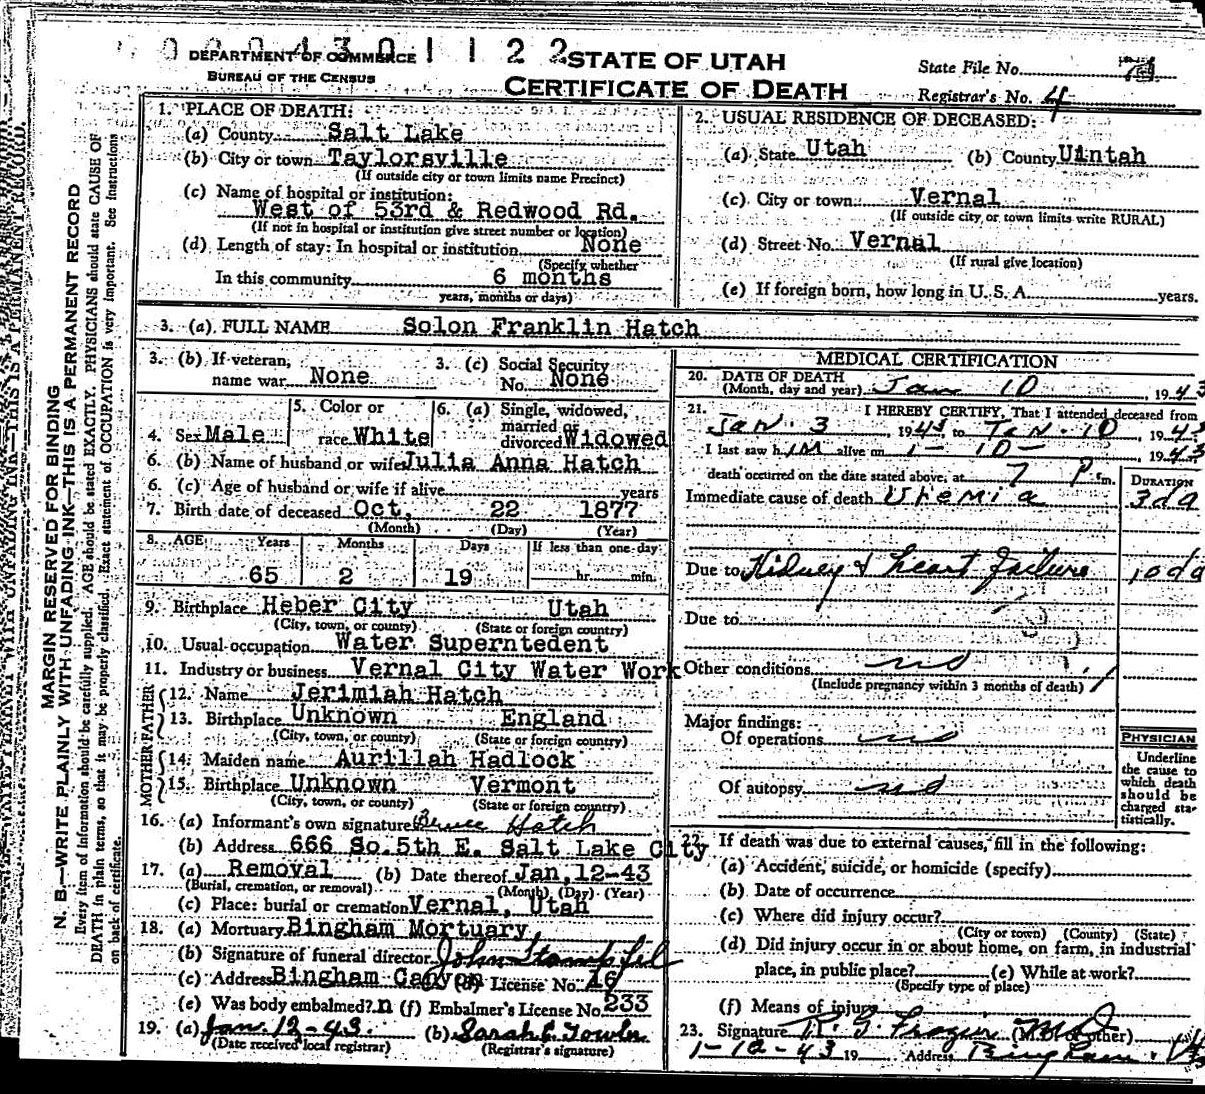 0 0 0 4 3 0 1 1 2 2
DEPARTMENT OF COMMERCE
BUREAU OF THE CENSUS
STATE OF UTAH
CERTIFICATE OF DEATH
State File No.
Registrar's No. 4
MARGIN RESERVED FOR BINDING
N. B.—WRITE PLAINLY WITH UNFADING INK—THIS IS A PERMANENT RECORD
Every item of information should be carefully supplied. AGE should be stated EXACTLY. PHYSICIANS should state CAUSE OF
DEATH in plain terms, so that it may be properly classified. Exact statement of OCCUPATION is very important. See instructions
on back of certificate.
1. PLACE OF DEATH:
(a) County Salt Lake
(b) City or town Taylorsville
(If outside city or town limits name Precinct)
(c) Name of hospital or institution:
West of 53rd & Redwood Rd.
(If not in hospital or institution give street number or location)
(d) Length of stay: In hospital or institution None
(Specify whether
In this community 6 months
years, months or days)
2. USUAL RESIDENCE OF DECEASED:
(a) State Utah (b) County Uintah
(c) City or town Vernal
(If outside city or town limits write RURAL)
(d) Street No. Vernal
(If rural give location)
(e) If foreign born, how long in U. S. A. years.
3. (a) FULL NAME Solon Franklin Hatch
3. (b) If veteran, name war None
3. (c) Social Security No. None
4. Sex Male
5. Color or race White
6. (a) Single, widowed, married or divorced Widowed
6. (b) Name of husband or wife Julia Anna Hatch
6. (c) Age of husband or wife if alive years
7. Birth date of deceased Oct, 22 1877
(Month) (Day) (Year)
8. AGE Years Months Days If less than one day
65 2 19 hr. min.
9. Birthplace Heber City Utah
(City, town, or county) (State or foreign country)
10. Usual occupation Water Superntedent
11. Industry or business Vernal City Water Work
FATHER
12. Name Jerimiah Hatch
13. Birthplace Unknown England
(City, town, or county) (State or foreign country)
MOTHER
14. Maiden name Aurillah Hadlock
15. Birthplace Unknown Vermont
(City, town, or county) (State or foreign country)
16. (a) Informant's own signature Bruce Hatch
(b) Address 666 So. 5th E. Salt Lake City
17. (a) Removal (b) Date thereof Jan, 12-43
(Burial, cremation, or removal) (Month) (Day) (Year)
(c) Place: burial or cremation Vernal, Utah
18. (a) Mortuary Bingham Mortuary
(b) Signature of funeral director John Stampfel
(c) Address Bingham Canyon (d) License No. 46
(e) Was body embalmed? n (f) Embalmer's License No. 233
19. (a) Jan. 12-43. (b) Sarah E. Towln
(Date received local registrar) (Registrar's signature)
MEDICAL CERTIFICATION
20. DATE OF DEATH
(Month, day and year) Jan 10, 1943
21. I HEREBY CERTIFY, That I attended deceased from
Jan. 3, 1943 to Jan. 10, 1943
I last saw him alive on 1-10-, 1943
death occurred on the date stated above, at 7 P. m.
DURATION
Immediate cause of death Uremia 3 da
Due to Kidney & heart failure 10 da
Due to
Other conditions no
(Include pregnancy within 3 months of death)
Major findings:
Of operations no
Of autopsy no
PHYSICIAN
Underline
the cause to
which death
should be
charged sta-
tistically.
22. If death was due to external causes, fill in the following:
(a) Accident, suicide, or homicide (specify)
(b) Date of occurrence
(c) Where did injury occur?
(City or town) (County) (State)
(d) Did injury occur in or about home, on farm, in industrial
place, in public place? (e) While at work?
(Specify type of place)
(f) Means of injury
23. Signature R. G. Frazier M.D. (M.D. or other)
1-12-43 19 Address Bingham, Ut